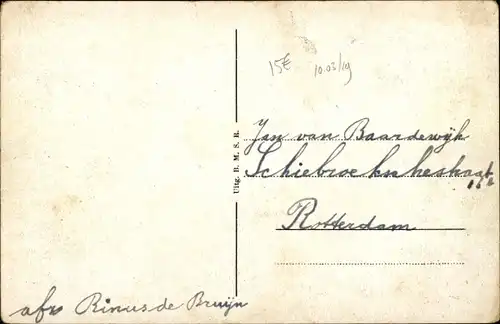 15€
10.03/19
Jan van Baardewijk
Schiebroekschestraat
16b
Rotterdam
Uitg. R. M. S. R.
afz Rinus de Bruijn